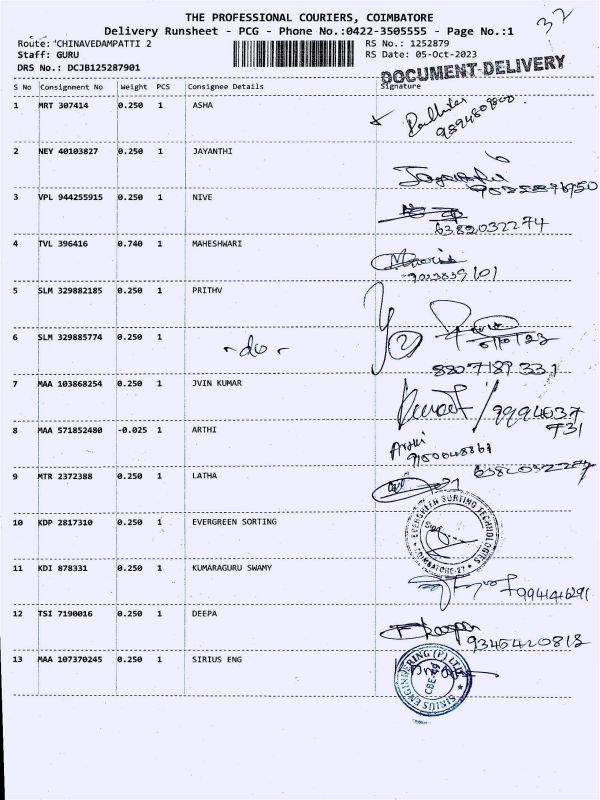 THE PROFESSIONAL COURIERS, COIMBATORE
32
Delivery Runsheet - PCG - Phone No.:0422-3505555 - Page No.:1
Route: CHINAVEDAMPATTI 2
RS No.: 1252879
Staff: GURU
RS Date: 05-Oct-2023
DRS No.: DCJB125287901
DOCUMENT-DELIVERY
S No Consignment No Weight PCS Consignee Details Signature
1 MRT 307414 0.250 1 ASHA
2 NEY 40103827 0.250 1 JAYANTHI
3 VPL 944255915 0.250 1 NIVE
6382032274
4 TVL 396416 0.740 1 MAHESHWARI
5 SLM 329882185 0.250 1 PRITHV
6 SLM 329885774 0.250 1 - do -
8807189331
7 MAA 103868254 0.250 1 JVIN KUMAR
9994037
731
8 MAA 571852480 -0.025 1 ARTHI
Arthi
9 MTR 2372388 0.250 1 LATHA
10 KDP 2817310 0.250 1 EVERGREEN SORTING
EVERGREEN SORTING TECHNOLOGIES
COIMBATORE-27
11 KDI 878331 0.250 1 KUMARAGURU SWAMY
12 TSI 7190016 0.250 1 DEEPA
9345420818
13 MAA 107370245 0.250 1 SIRIUS ENG
SIRIUS ENGINEERING (P) LTD
CBE-49